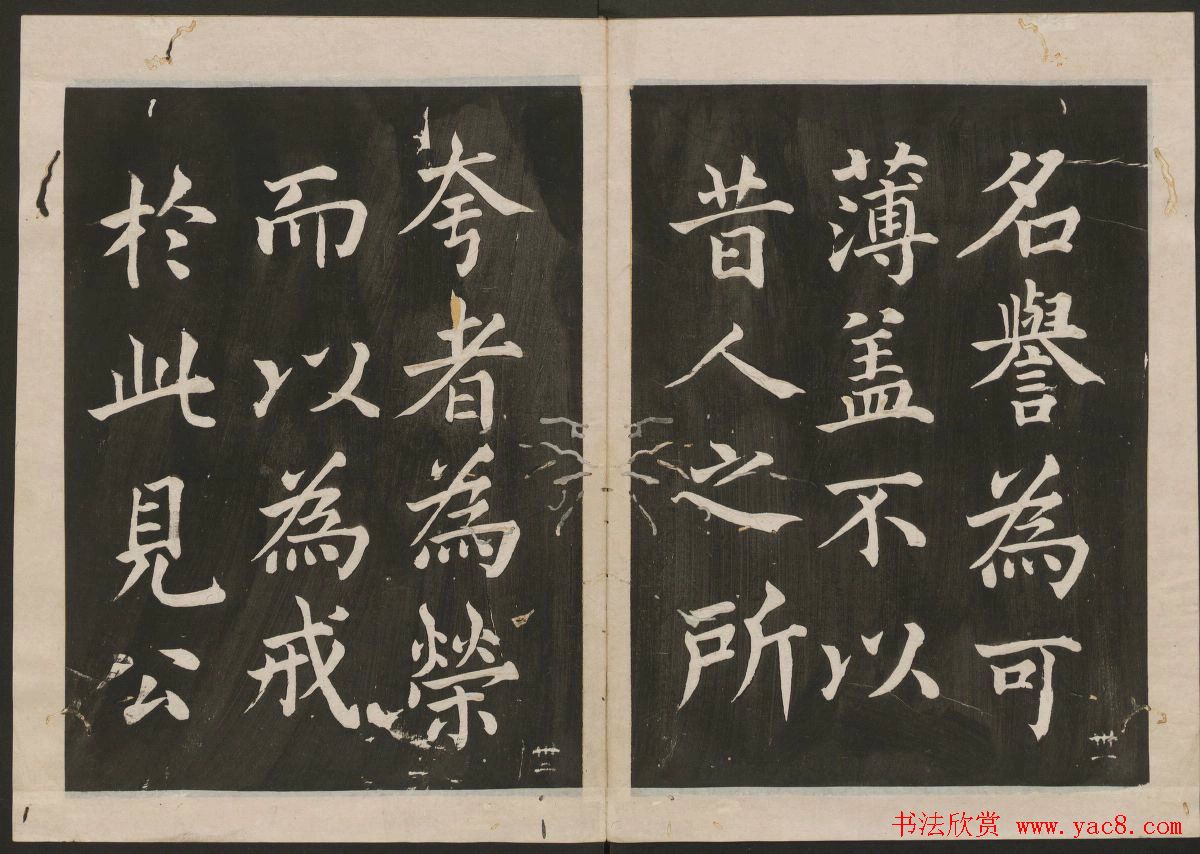 名譽為可
薄盖不以
昔人之所
夸者為榮
而以為戒
於此見公
书法欣赏 www.yac8.com